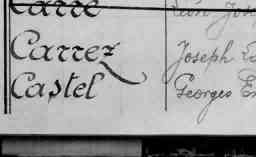 Carre Léon Jos
Carrez Joseph
Castel Georges